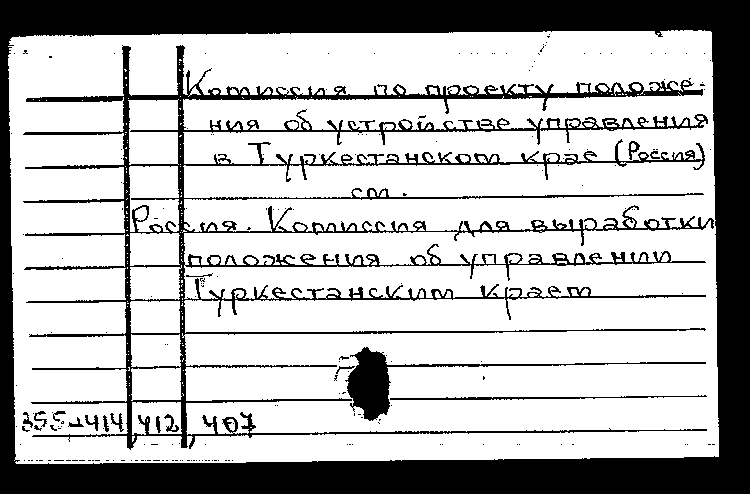 Комиссия по проекту положе-
ния об устройстве управления
в Туркестанском крае (Россия)
см.
Россия. Комиссия для выработки
положения об управлении
Туркестанским краем
355-414, 412, 407